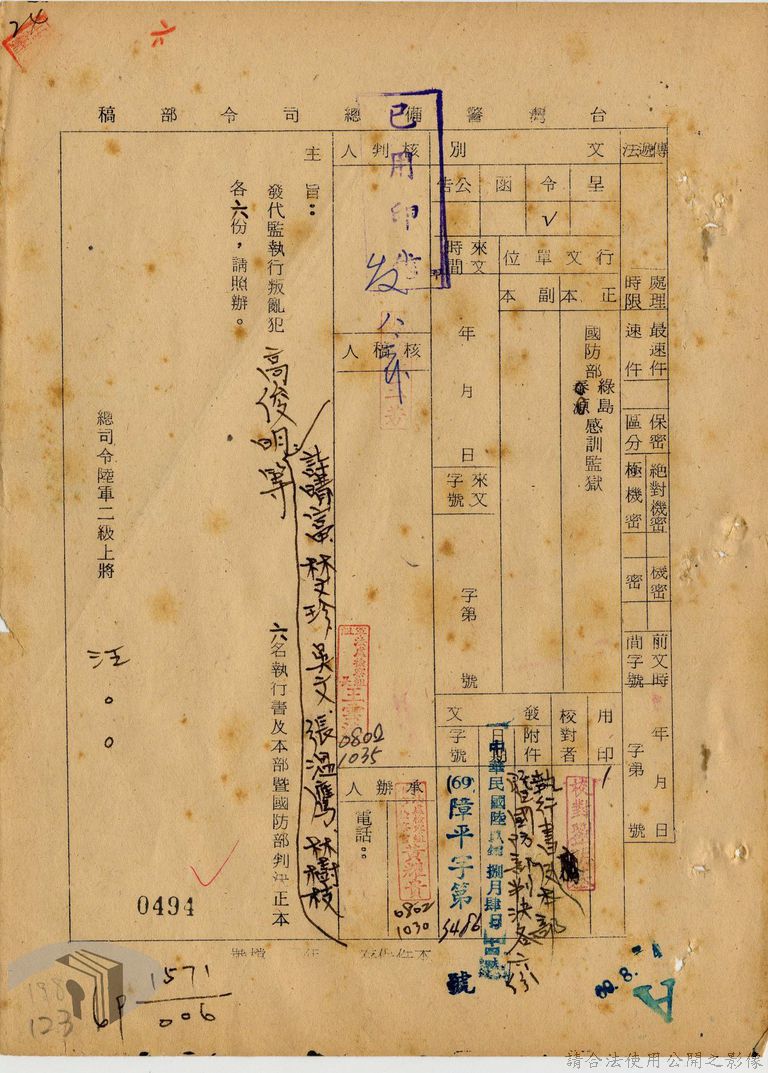 24
六
台灣警備總司令部稿
傳遞法
處理時限
最速件
速件
保密區分
絕對機密
極機密
機密
密
前文時間字號
年月日
字第號
文別
呈
令
函
公告
✓
行文單位
正本
副本
國防部綠島感訓監獄
來文時間
年月日
來文字號
字第號
用印
1
校對者
發文
附件
執行書及本部暨國防部判決各六份
日期
中華民國陸玖年捌月肆日
字號
(69)障平字第5486號
核判人
已用印
发
核稿人
0802
1035
承辦人
電話：
0802
1030
主旨：
發代監執行叛亂犯高俊明等
許晴富、林文珍、吳文、張溫鷹、林樹枝
六名執行書及本部暨國防部判決正本
各六份，請照辦。
總司令陸軍二級上將汪。。
0494
69.8.
1571
006
123
請合法使用公開之影像